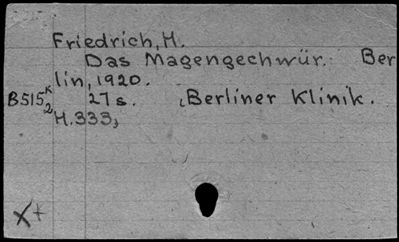 Friedrich, H.
Das Magengechwür. Ber
lin, 1920.
B515 K 2 27 s. (Berliner Klinik.
H. 333)
X+